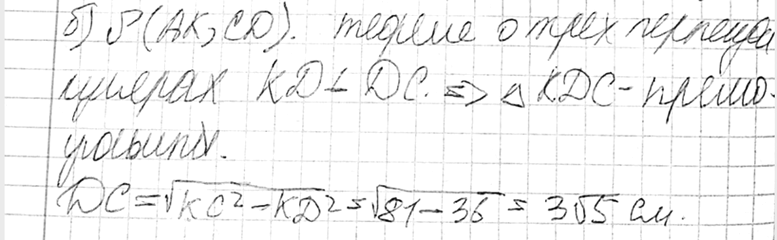 б) ρ(AK, CD). теореме о трех перпенди
кулярах KD ⊥ DC. => △ KDC - прямо-
угольный.
DC = √(KC² - KD²) = √(81 - 36) = 3√5 см.